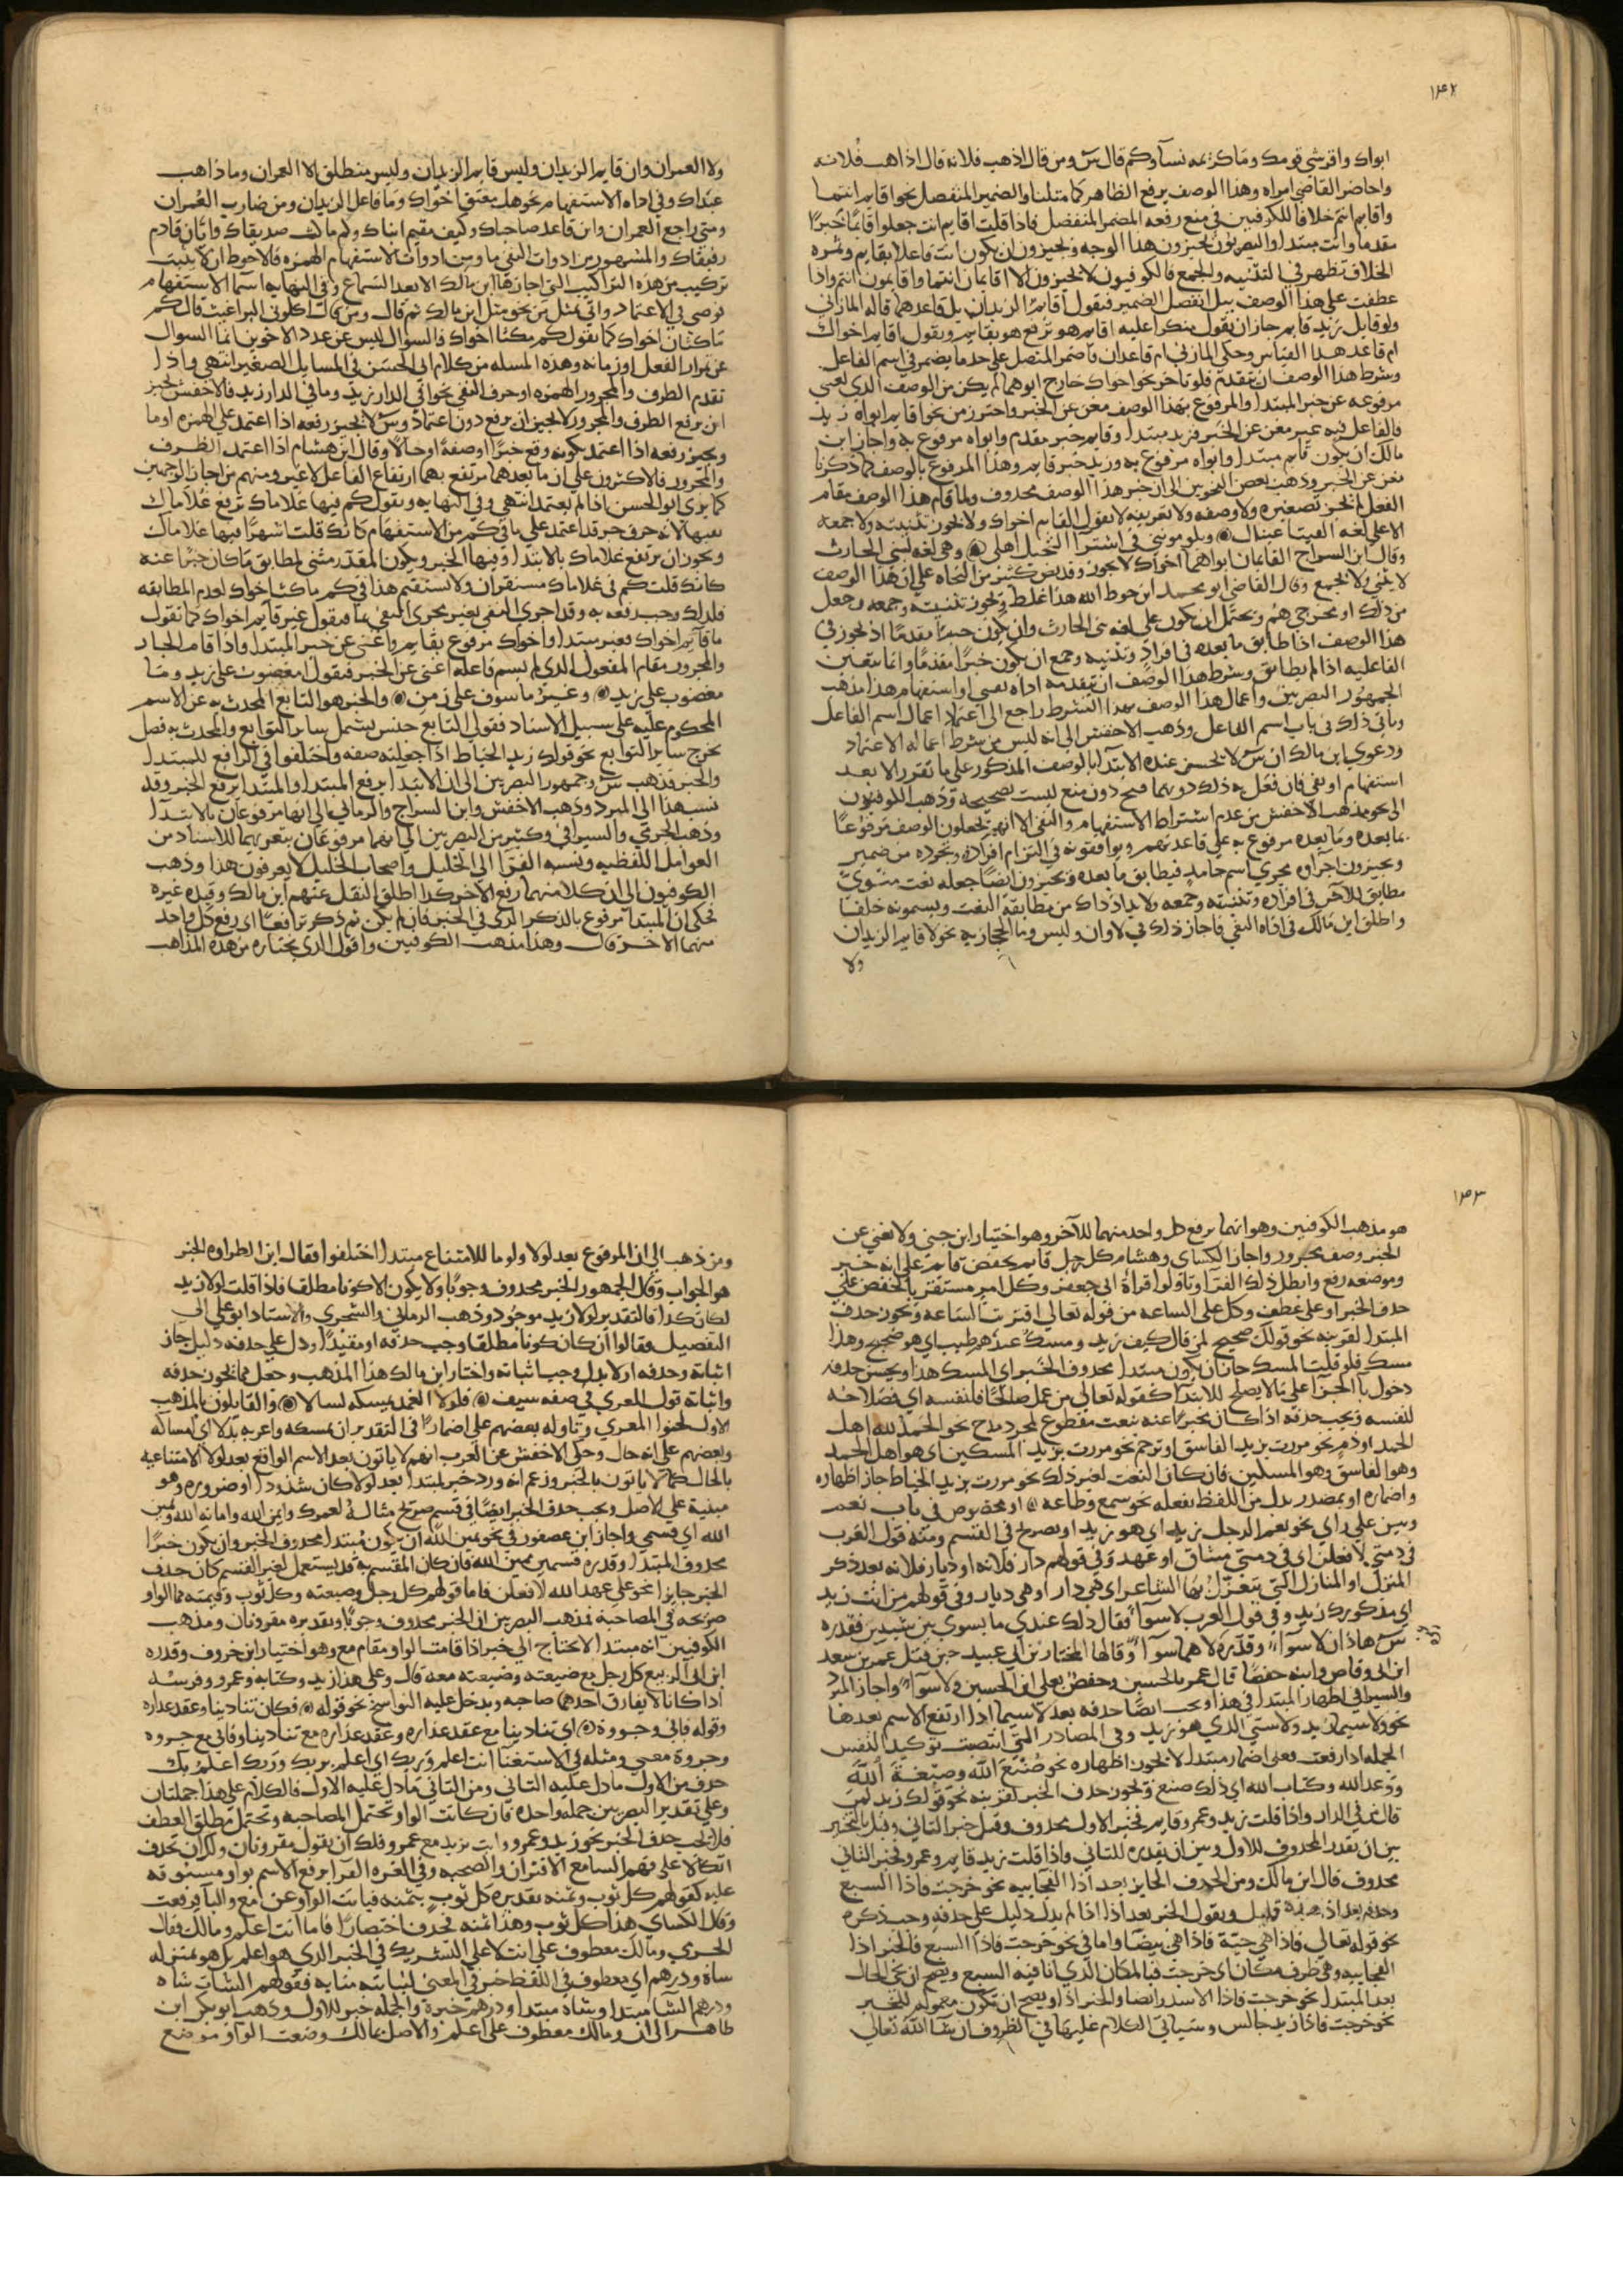 ١٤٢
ابواك واقرشي قومك وما كريمه نساوكم قال س ومن قال اذهب فلانه قال اذاهب فلانه
واحاضر القاضي امراه وهذا الوصف يرفع الظاهر كما مثلنا والضمير المنفصل نحو اقايم انتما
واقايم انتم خلافا للكوفيين في منع رفعه المضمر المنفصل فاذا قلت اقايم انت جعلوا قايما خبرا
مقدما وانت مبتدا والبصريون يجيزون هذا الوجه ويجيزون ان يكون انت فاعلا بقايم وثمره
الخلاف تظهر في التثنيه والجمع فالكوفيون لا يجيزون الا اقايمان انتما واقايمون انتم واذا
عطفت على هذا الوصف ببل انفصل الضمير فتقول اقايم الزيدان بل قاعد هما قاله المازني
ولو قايل زيد قايم جاز ان يقول منكرا عليه اقايم هو ترفع هو بقايم ويقول اقايم اخواك
ام قاعد هذا القياس وحكي المازني ام قاعدان فاضمر المتصل على حد ما يضمر في اسم الفاعل
وشرط هذا الوصف ان يتقدم فلو تاخر نحو اخواك خارج ابوهما لم يكن من الوصف الذي يغني
مرفوعه عن خبر المبتدا والمرفوع بهذا الوصف مغن عن الخبر واحترز من نحو اقايم ابواه زيد
فالفاعل فيه غير مغن عن الخبر فزيد مبتدا وقايم خبر مقدم وابواه مرفوع به واجاز ابن
مالك ان يكون قايم مبتدا وابواه مرفوع به وزيد خبر قايم وهذا المرفوع بالوصف كما ذكرنا
مغن عن الخبر وذهب بعض النحويين الى ان خبر هذا الوصف محذوف ولما قام هذا الوصف مقام
الفعل لم يجز تصغيره ولا وصفه ولا تعريفه لا تقول القايم اخواك ولا يجوز تثنيته ولا جمعه
الا على لغه الفيتا عيناك ۞ ويلومونني في اشترا النخيل اهلي ۞ وهي لغه لبني الحارث
وقال ابن السراج القايمان ابواهما اخواك لا يجوز وقد نص كثير من النحاه على ان هذا الوصف
لا يثني ولا يجمع وقال القاضي ابو محمد ابن حوط الله هذا غلط ويجوز تثنيته وجمعه وجعل
من ذلك او مخرجي هم ويحتمل ان يكون على لغه بني الحارث وان يكون خبرا مقدما اذ يجوز في
هذا الوصف اذا طابق ما بعده في افراد وتثنيه وجمع ان يكون خبرا مقدما وانما تتعين
الفاعليه اذا لم يطابق وشرط هذا الوصف ان يتقدمه اداه نفي او استفهام هذا مذهب
الجمهور البصريين واعمال هذا الوصف بهذا الشرط راجع الى اعتماد اعمال اسم الفاعل
وياتي ذلك في باب اسم الفاعل وذهب الاخفش الى انه ليس من شرط اعماله الاعتماد
ودعوي ابن مالك ان س لا يحسن عنده الابتدا بالوصف المذكور على ما تقرر الا بعد
استفهام او نفي فان فعل به ذلك دونهما قبح دون منع ليست بصحيحه وذهب الكوفيون
الى نحو مذهب الاخفش من عدم اشتراط الاستفهام والنفي الا انهم يجعلون الوصف مرفوعا
بما بعده وما بعده مرفوع به على قاعدتهم ويوافقونه في التزام افراده وتجرده من ضمير
ويجيزون اجراه مجري اسم جامد فيطابق ما بعده ويجيزون ايضا جعله نعت منوي
مطابق للاخر في افراده وتثنيته وجمعه ولا بد اذ ذاك من مطابقه النعت ويسمونه خلفا
واطلق ابن مالك في اداه النفي فاجاز ذلك في لا وان وليس وما الحجازيه نحو لا قايم الزيدان
ولا
ولا العمران وان قايم الزيدان وليس قايم الزيدان وليس منطلق الا العمران وما ذاهب
عبداك وفي اداه الاستفهام نحو هل معتق اخواك وما فاعل الزيدان ومن ضارب العمران
ومتي راجع العمران واين قاعد صاحباك وكيف مقيم ابناك وكم ماكث صديقاك وايان قادم
رفيقاك والمشهور من ادوات النفي ما ومن ادوات الاستفهام الهمزه فالاحوط ان لا يثبت
تركيب من هذه التراكيب التي اجازها ابن مالك الا بعد السماع وفي النهايه اسما الاستفهام
توصي في الاعتماد واتي بمثل من نحو مثل ابن مالك ثم قال ومن قال اكلوني البراغيث قال كم
ماكثان اخواك كما تقول كم مكثا اخواك فالسوال ليس عن عدد الاخوين انما السوال
عن مرار الفعل او زمانه وهذه المسله من كلام ابي الحسن في المسايل الصغير انتهي واذا
تقدم الظرف والمجرور الهمزه او حرف النفي نحو افي الدار زيد وما في الدار زيد فالاخفش يجيز
ان يرفع الظرف والمجرور لا يجيز ان يرفع دون اعتماد وس لا يجيز رفعه اذا اعتمد على الهمزه او ما
ويجيز رفعه اذا اعتمد بكونه وقع خبرا او صفه او حالا وقال ابن هشام اذا اعتمد الظرف
والمجرور فالاكثرون على ان ما بعدهما مرتفع بهما ارتفاع الفاعل لا غير ومنهم من اجاز الوجهين
كما يري ابو الحسن اذا لم يعتمد انتهي وفي النهايه وتقول كم فيها غلاماك ترفع غلاماك
بفيها لانه حرف جر قد اعتمد على ما في كم من الاستفهام كانك قلت اشهرا فيها غلاماك
ويجوز ان يرتفع غلاماك بالابتدا وفيها الخبر ويكون المقدر مثني لمطابق ما كان خبرا عنه
كانك قلت كم في غلاماك مستقران ولا يستقيم هذا في كم ماكث اخواك لعدم المطابقه
فلذلك وجب رفعه به وقد اجري النفي بغير مجري النفي بما فيقول غير قايم اخواك كما تقول
ما قايم اخواك فغير مبتدا واخواك مرفوع بقايم واغني عن خبر المبتدا واذا قام الجار
والمجرور مقام المفعول الذي لم يسم فاعله اغني عن الخبر فيقول امغضوب على زيد وما
مغضوب على زيد ۞ وغير ماسوف على زمن ۞ والخبر هو التابع المحدث به عن الاسم
المحكوم عليه على سبيل الاسناد فقولي التابع جنس يشمل ساير التوابع والمحدث به فصل
يخرج ساير التوابع نحو قولك زيد الخياط اذا جعلته صفه واختلفوا في الرافع للمبتدا
والخبر فذهب س وجمهور البصريين الى ان الابتدا يرفع المبتدا والمبتدا يرفع الخبر وقد
نسب هذا الى المبرد وذهب الاخفش وابن السراج والرماني الى انهما مرفوعان بالابتدا
وذهب الجرمي والسيرافي وكثير من البصريين الى انهما مرفوعان بتعريهما للاسناد من
العوامل اللفظيه ونسبه الفرا الى الخليل واصحاب الخليل لا يعرفون هذا وذهب
الكوفيون الى ان كلا منهما رفع الاخر كذا اطلق النقل عنهم ابن مالك وقيده غيره
فحكي ان المبتدا مرفوع بالذكر الذي في الخبر فان لم يكن ثم ذكر ترافعا اي رفع كل واحد
منهما الاخر قال وهذا مذهب الكوفيين واقول الذي نختاره من هذه المذاهب
١٤٣
هو مذهب الكوفيين وهو انهما يرفع كل واحد منهما للاخر وهو اختيار ابن جني ولا يغني عن
الخبر وصف مجرور واجاز الكساي وهشام كل رجل قايم بخفض قايم على انه خبر
وموضعه رفع وابطل ذلك الفرا وتاولوا قراه ابي جعفر وكل امر مستقر بالخفض على
حذف الخبر او على عطف وكل على الساعه من قوله تعالي اقتربت الساعه ويجوز حذف
المبتدا لقرينه نحو قولك صحيح لمن قال كيف زيد ومسك عند شم طيب اي هو صحيح وهذا
مسك فلو قلت المسك جاز ان يكون مبتدا محذوف الخبر اي المسك هذا ويحسن حذفه
دخول فا الجزا على ما لا يصلح للابتدا كقوله تعالي من عمل صالحا فلنفسه اي فصلاحه
لنفسه ويجب حذفه اذا كان مخبرا عنه بنعت مقطوع لمجرد مدح نحو الحمد لله اهل
الحمد او ذم نحو مررت بزيد الفاسق او ترحم نحو مررت بزيد المسكين اي هو اهل الحمد
وهو الفاسق وهو المسكين فان كان النعت لغير ذلك نحو مررت بزيد الخياط جاز اظهاره
واضماره او بمصدر بدل من اللفظ بفعله نحو سمع وطاعه ۞ او مخصوص في باب نعم
وبين علي راي نحو نعم الرجل زيد اي هو زيد او بصريح في القسم ومنه قول العرب
في ذمتي لافعلن اي في ذمتي ميثاق او عهد وفي قولهم دار فلانه او ديار فلانه بعد ذكر
المنزل او المنازل التي يتغزل بها الشاعر اي هي دار او هي ديار وفي قولهم من انت زيد
اي مذكورك زيد وفي قول العرب لا سوا فقال ذلك عندي ما يسوي بين شيين فقدره
س هاذان لا سوا وقدره لا هما سوا وقالها المختار بن ابي عبيد حين قتل عمر بن سعد
ابن ابي وقاص وابنه حفصا قال عمر بالحسين وحفص بعلي ابن الحسين ولا سوا واجاز المبرد
والسيرافي اظهار المبتدا في هذا ويجب ايضا حذفه بعد لا سيما اذا ارتفع الاسم بعدها
نحو ولا سيما زيد ولا سي الذي هو زيد وفي المصادر التي انتصبت توكيدا لنفس
الجمله اذا رفعت فعلى اضمار مبتدا لا يجوز اظهاره نحو صنع الله وصبغة الله
ووعد الله وكتاب الله اي ذلك صنع ويجوز حذف الخبر لقرينه نحو قولك زيد لمن
قال من في الدار واذا قلت زيد وعمرو قايم فخبر الاول محذوف وقيل خبر الثاني وقيل بالتخيير
بين ان تقدر المحذوف للاول وبين ان تقدره للثاني واذا قلت زيد قايم وعمرو فخبر الثاني
محذوف قال ابن مالك ومن الحذف الجايز بعد اذا الفجاييه نحو خرجت فاذا السبع
وحذفه بعد اذا هذه قليل ويقول الخبر بعد اذا اذا لم يدل دليل على حذفه وجب ذكره
نحو قوله تعالي فاذا هي حية فاذا هي بيضا واما في نحو خرجت فاذا السبع فالخبر اذا
الفجاييه وهي ظرف مكان اي خرجت فبالمكان الذي انا فيه السبع ويصح ان تجي الحال
بعد المبتدا نحو خرجت فاذا الاسد رابضا والخبر اذا ويصح ان تكون معموله للخبر
نحو خرجت فاذا زيد جالس وسياتي الكلام عليها في الظروف ان شا الله تعالي
ومن ذهب الى ان المرفوع بعد لولا ولوما للامتناع مبتدا اختلفوا فقال ابن الطراوه الخبر
هو الجواب وقال الجمهور الخبر محذوف وجوبا ولا يكون الا كونا مطلقا فاذا قلت لولا زيد
لكان كذا فالتقدير لولا زيد موجود وذهب الرماني والشجري والاستاد ابو علي الى
التفصيل فقالوا ان كان كونا مطلقا وجب حذفه او مقيدا ودل على حذفه دليل جاز
اثباته وحذفه او لا يدل وجب اثباته واختار ابن مالك هذا المذهب وجعل مما يجوز حذفه
واثباته قول المعري في صفه سيف ۞ فلولا الغمد يمسكه لسالا ۞ والقايلون بالمذهب
الاول لحنوا المعري وتاوله بعضهم على اضمار ان التقدير ان يمسكه واعربه بدلا اي امساكه
وبعضهم على انه حال وحكي الاخفش عن العرب انهم لا ياتون بعد الاسم الواقع بعد لولا الامتناعيه
بالحال كما لا ياتون بالخبر وزعم انه ورد خبر المبتدا بعد لولا كان شذوذا او ضروره وهو
مبنية على الاصل ويجب حذف الخبر ايضا في قسم صريح مثاله لعمرك وايمن الله وامانه الله ويمين
الله اي قسمي واجاز ابن عصفور في نحو يمين الله ان يكون مبتدا محذوف الخبر وان يكون خبرا
محذوف المبتدا وقدره قسمي يمين الله فان كان المقسم به قد يستعمل لغير القسم كان حذف
الخبر جايزا نحو على عهد الله لافعلن فاما قولهم كل رجل وضيعته وكل ثوب وقيمته مما الواو
صريحه في المصاحبه فمذهب البصريين ان الخبر محذوف وجوبا وتقديره مقرونان ومذهب
الكوفيين انه مبتدا لا يحتاج الى خبر اذا قامت الواو مقام مع وهو اختيار ابن خروف وقدره
ابن ابي الربيع كل رجل مع ضيعته وضيعته معه قال وعلى هذا زيد وكتابه وعمرو وفرسه
اذا كانا لا يفارق احدهما صاحبه ويدخل عليه النواسخ نحو قوله ۞ فكان تنادينا وعقد عذاره
وقوله فاني وجروة ۞ اي تنادينا مع عقد عذاره وعقد عذاره مع تنادينا وفاني مع جروه
وجروة معي ومثله في الاستغنا انت اعلم وربك اي اعلم بربك وربك اعلم بك
حذف من الاول ما دل عليه الثاني ومن الثاني ما دل عليه الاول فالكلام على هذا جملتان
وعلى تقدير البصريين جملة واحده فان كانت الواو تحتمل المصاحبه وتحتمل مطلق العطف
فلا يجب حذف الخبر نحو زيد وعمرو وانت تريد مع عمرو فلك ان تقول مقرونان ولك ان تحذف
اتكالا على فهم السامع الاقتران والصحبه وفي الغره الفرا يرفع الاسم بواو مسبوقه
عليه كقولهم كل ثوب وثمنه تقديره كل ثوب بثمنه فنابت الواو عن مع والبا فرفعت
وقال الكساي هذا كل ثوب وهذا ثمنه فحذف اختصارا فاما انت اعلم ومالك فقال
الجرمي ومالك معطوف على انت لا على التشريك في الخبر الذي هو اعلم بل هو بمنزله
شاة ودرهم اي معطوف في اللفظ خبر في المعني لنيابته منابه فقولهم الشا شاه
ودرهم الشا مبتدا وشاه مبتدا ودرهم خبره والجمله خبر للاول وذهب ابو بكر ابن
طاهر الى ان ومالك معطوف على اعلم والاصل بمالك وضعت الواو موضع